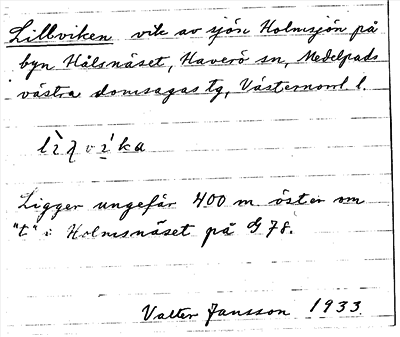 Lillviken vik av sjön Holmsjön på
byn Hålsnäset, Haverö sn, Medelpads
västra domsagas tg, Västernorrl l.
Ligger ungefär 400 m öster om
"t" i Holmsnäset på G 78.
Valter Jansson 1933.